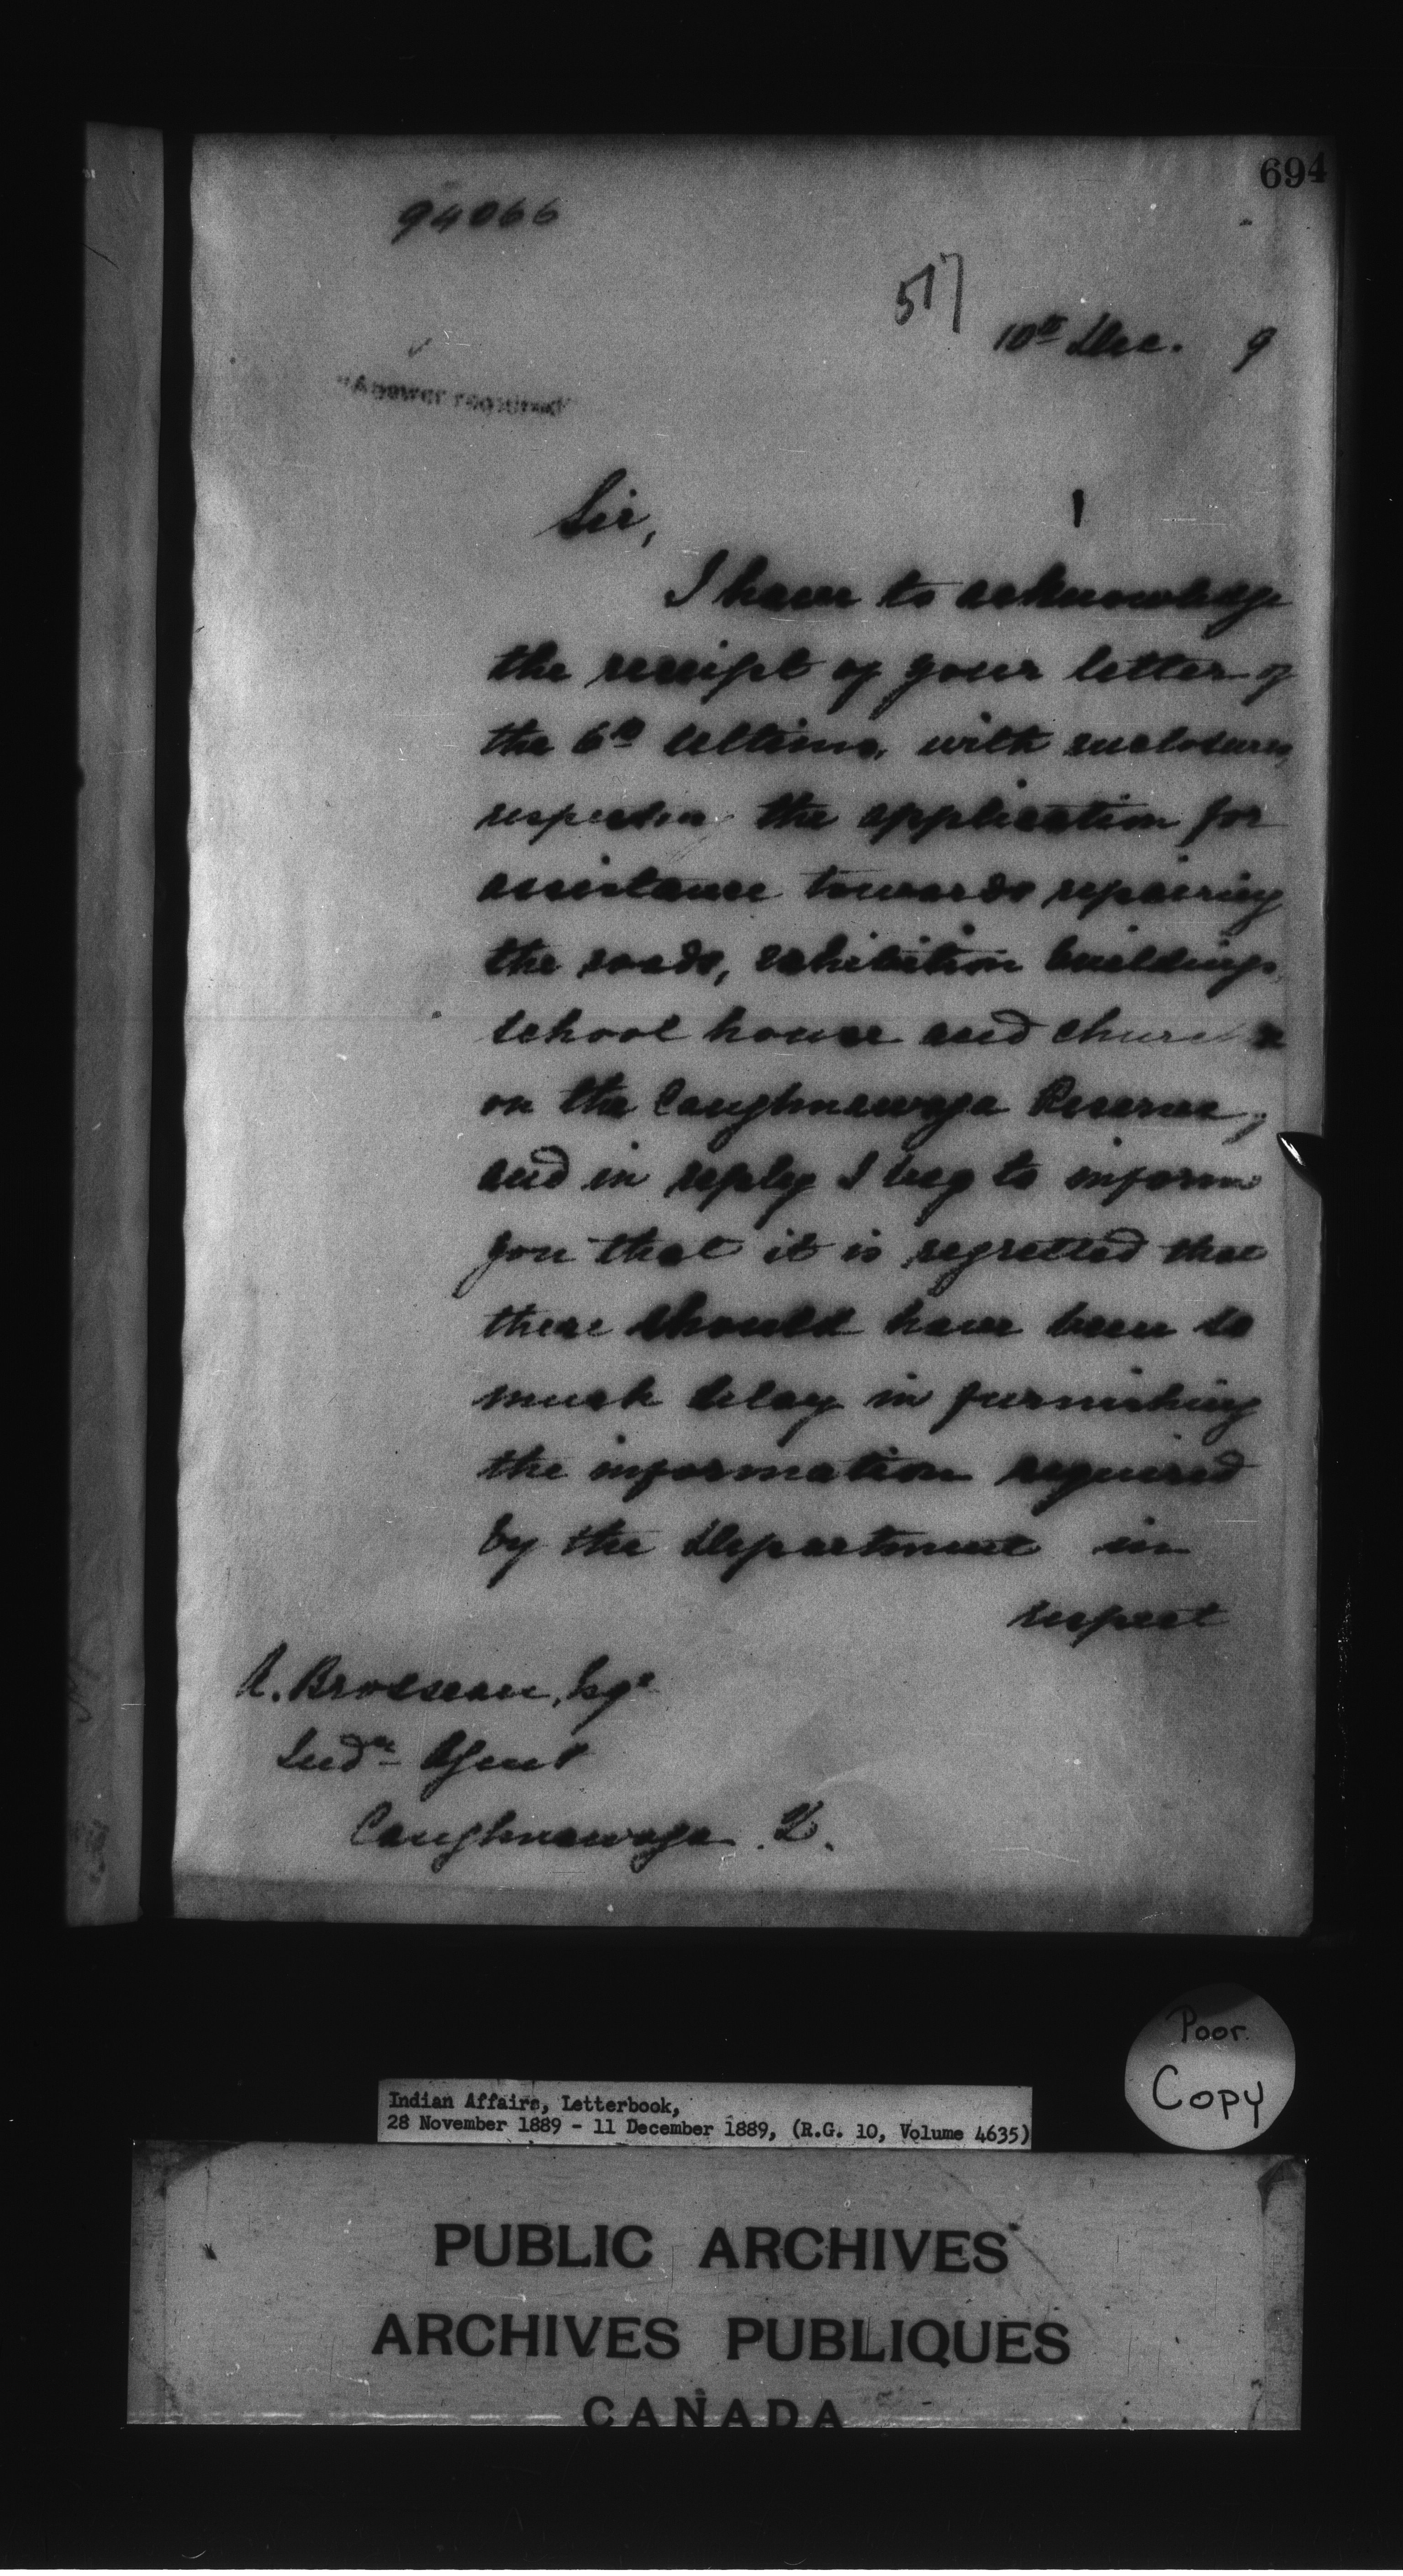 694
94066
517
10th Dec. 9
"Answer required"
Sir,
I have to acknowledge
the receipt of your letter of
the 6th Ultimo, with enclosures,
respecting the application for
assistance towards repairing
the roads, exhibition buildings
school house and church
on the Caughnawaga Reserve,
and in reply I beg to inform
you that it is regretted that
there should have been so
much delay in furnishing
the information required
by the Department in
respect
A. Brosseau, Esqr
Indn Agent
Caughnawaga Q.
Poor
Copy
Indian Affairs, Letterbook,
28 November 1889 - 11 December 1889, (R.G. 10, Volume 4635)
PUBLIC ARCHIVES
ARCHIVES PUBLIQUES
CANADA